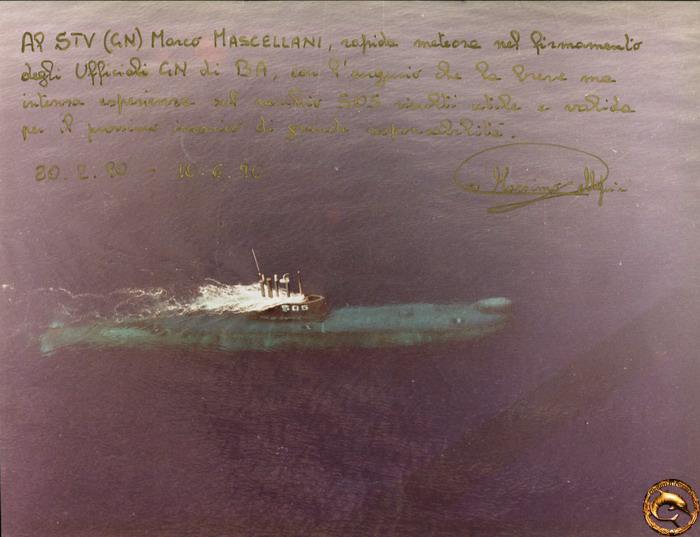 Al STV (GN) Marco MASCELLANI, rapida meteora nel firmamento
degli Ufficiali GN di BA, con l'augurio che la breve ma
intensa esperienza sul vecchio 505 risulti utile e valida
per il prossimo incarico di grande responsabilità.
20.2.90 - 10.6.90
Massimo
505